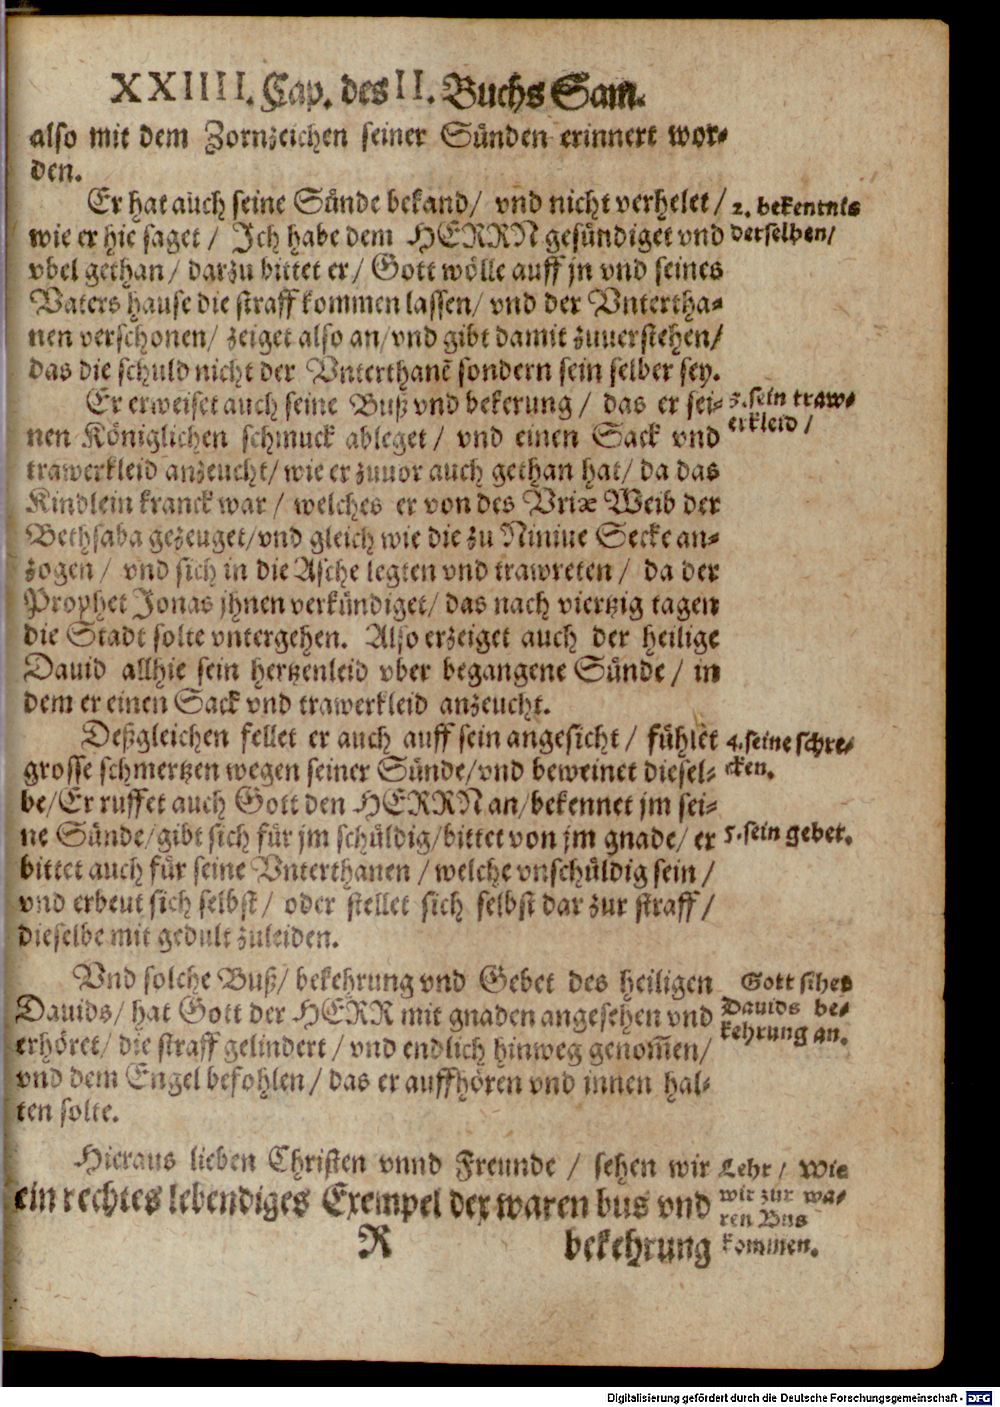 XXIIII. Cap. des II. Buchs Sam.
also mit dem Zornzeichen seiner Sünden erinnert wor-
den.
Er hat auch seine Sünde bekand/ vnd nicht verhelet/
2. bekentnis
wie er hie saget/ Ich habe dem HERRN gesündiget vnd
derselben/
vbel gethan/ darzu bittet er/ Gott wölle auff jn vnd seines
Vaters hause die straff kommen lassen/ vnd der Vntertha-
nen verschonen/ zeiget also an/ vnd gibt damit zuuerstehen/
das die schuld nicht der Vnterthanē sondern sein selber sey.
Er erweiset auch seine Buß vnd bekerung/ das er sei-
3. sein traw-
nen Königlichen schmuck ableget/ vnd einen Sack vnd
erkleid/
trawerkleid anzeucht/ wie er zuuor auch gethan hat/ da das
Kindlein kranck war/ welches er von des Vriæ Weib der
Bethsaba gezeuget/ vnd gleich wie die zu Niniue Secke an-
zogen/ vnd sich in die Asche legten vnd trawreten/ da der
Prophet Jonas jhnen verkündiget/ das nach viertzig tagen
die Stadt solte vntergehen. Also erzeiget auch der heilige
Dauid allhie sein hertzenleid vber begangene Sünde/ in
dem er einen Sack vnd trawerkleid anzeucht.
Deßgleichen fellet er auch auff sein angesicht/ fühlet
4. seine schre-
grosse schmertzen wegen seiner Sünde/ vnd beweinet diesel-
cken.
be/ Er ruffet auch Gott den HERRN an/ bekennet jm sei-
ne Sünde/ gibt sich für jm schüldig/ bittet von jm gnade/ er
5. sein gebet.
bittet auch für seine Vnterthanen/ welche vnschüldig sein/
vnd erbeut sich selbst/ oder stellet sich selbst dar zur straff/
dieselbe mit gedult zuleiden.
Vnd solche Buß/ bekehrung vnd Gebet des heiligen
Gott sihet
Dauids/ hat Gott der HERR mit gnaden angesehen vnd
Dauids be-
erhöret/ die straff gelindert/ vnd endlich hinweg genom̃en/
kehrung an.
vnd dem Engel befohlen/ das er auffhören vnd innen hal-
ten solte.
Hieraus lieben Christen vnnd Freunde/ sehen wir
Lehr/ Wie
ein rechtes lebendiges Exempel der waren bus vnd
wir zur wa-
ren Bus
R bekehrung
kommen.
Digitalisierung gefördert durch die Deutsche Forschungsgemeinschaft - DFG